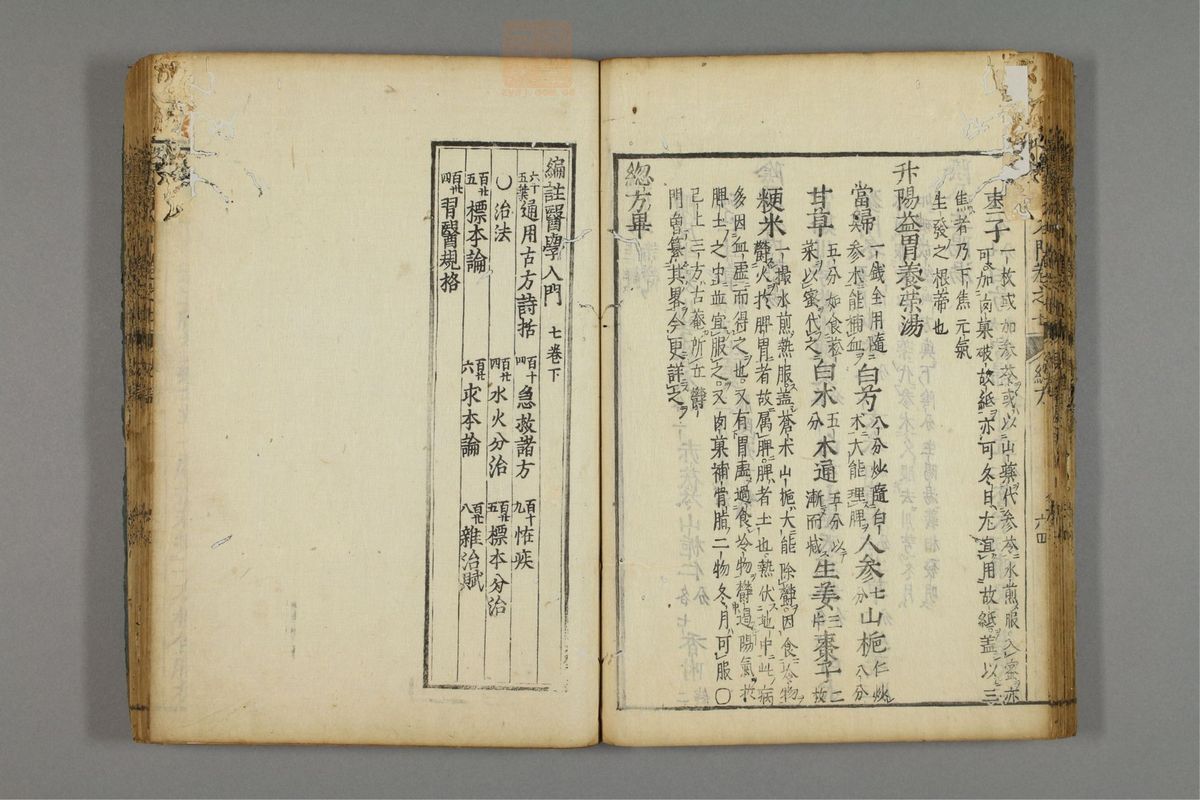 棗子 一枚或加参茶或以山薬代参朮水煎服入蜜亦
可加肉菓破故紙亦可冬日尤宜用故紙蓋以三
焦者乃下焦元氣
生發之根蒂也
升陽益胃養栄湯
當歸 一錢全用随 白芍 八分炒随白 人参 七分 山梔 仁炒八分
甘草 五分如食 白朮 五分 木通 五分以漸而减 生姜 三片 棗子 二
粳米 一撮水煎熱服蓋蒼朮山梔大能除欝因食冷物
欝火於脾胃者故属脾脾者土也熱伏地中此病
多因血虚而得之也又有胃虚過食冷物欝遏陽氣於
脾土之中並宜服之又肉菓補骨脂二物冬月可服○
已上三方古菴所在
門曽纂其畧今更詳之
総方畢
編註醫學入門 七巻下
六十五葉 通用古方詩括 百十四 急救諸方 百十九 怪疾
○治法 百廿四 水火分治 百廿五 標本分治
百廿五 標本論 百廿六 求本論 百廿八 雜治賦
百廿四 習醫規格